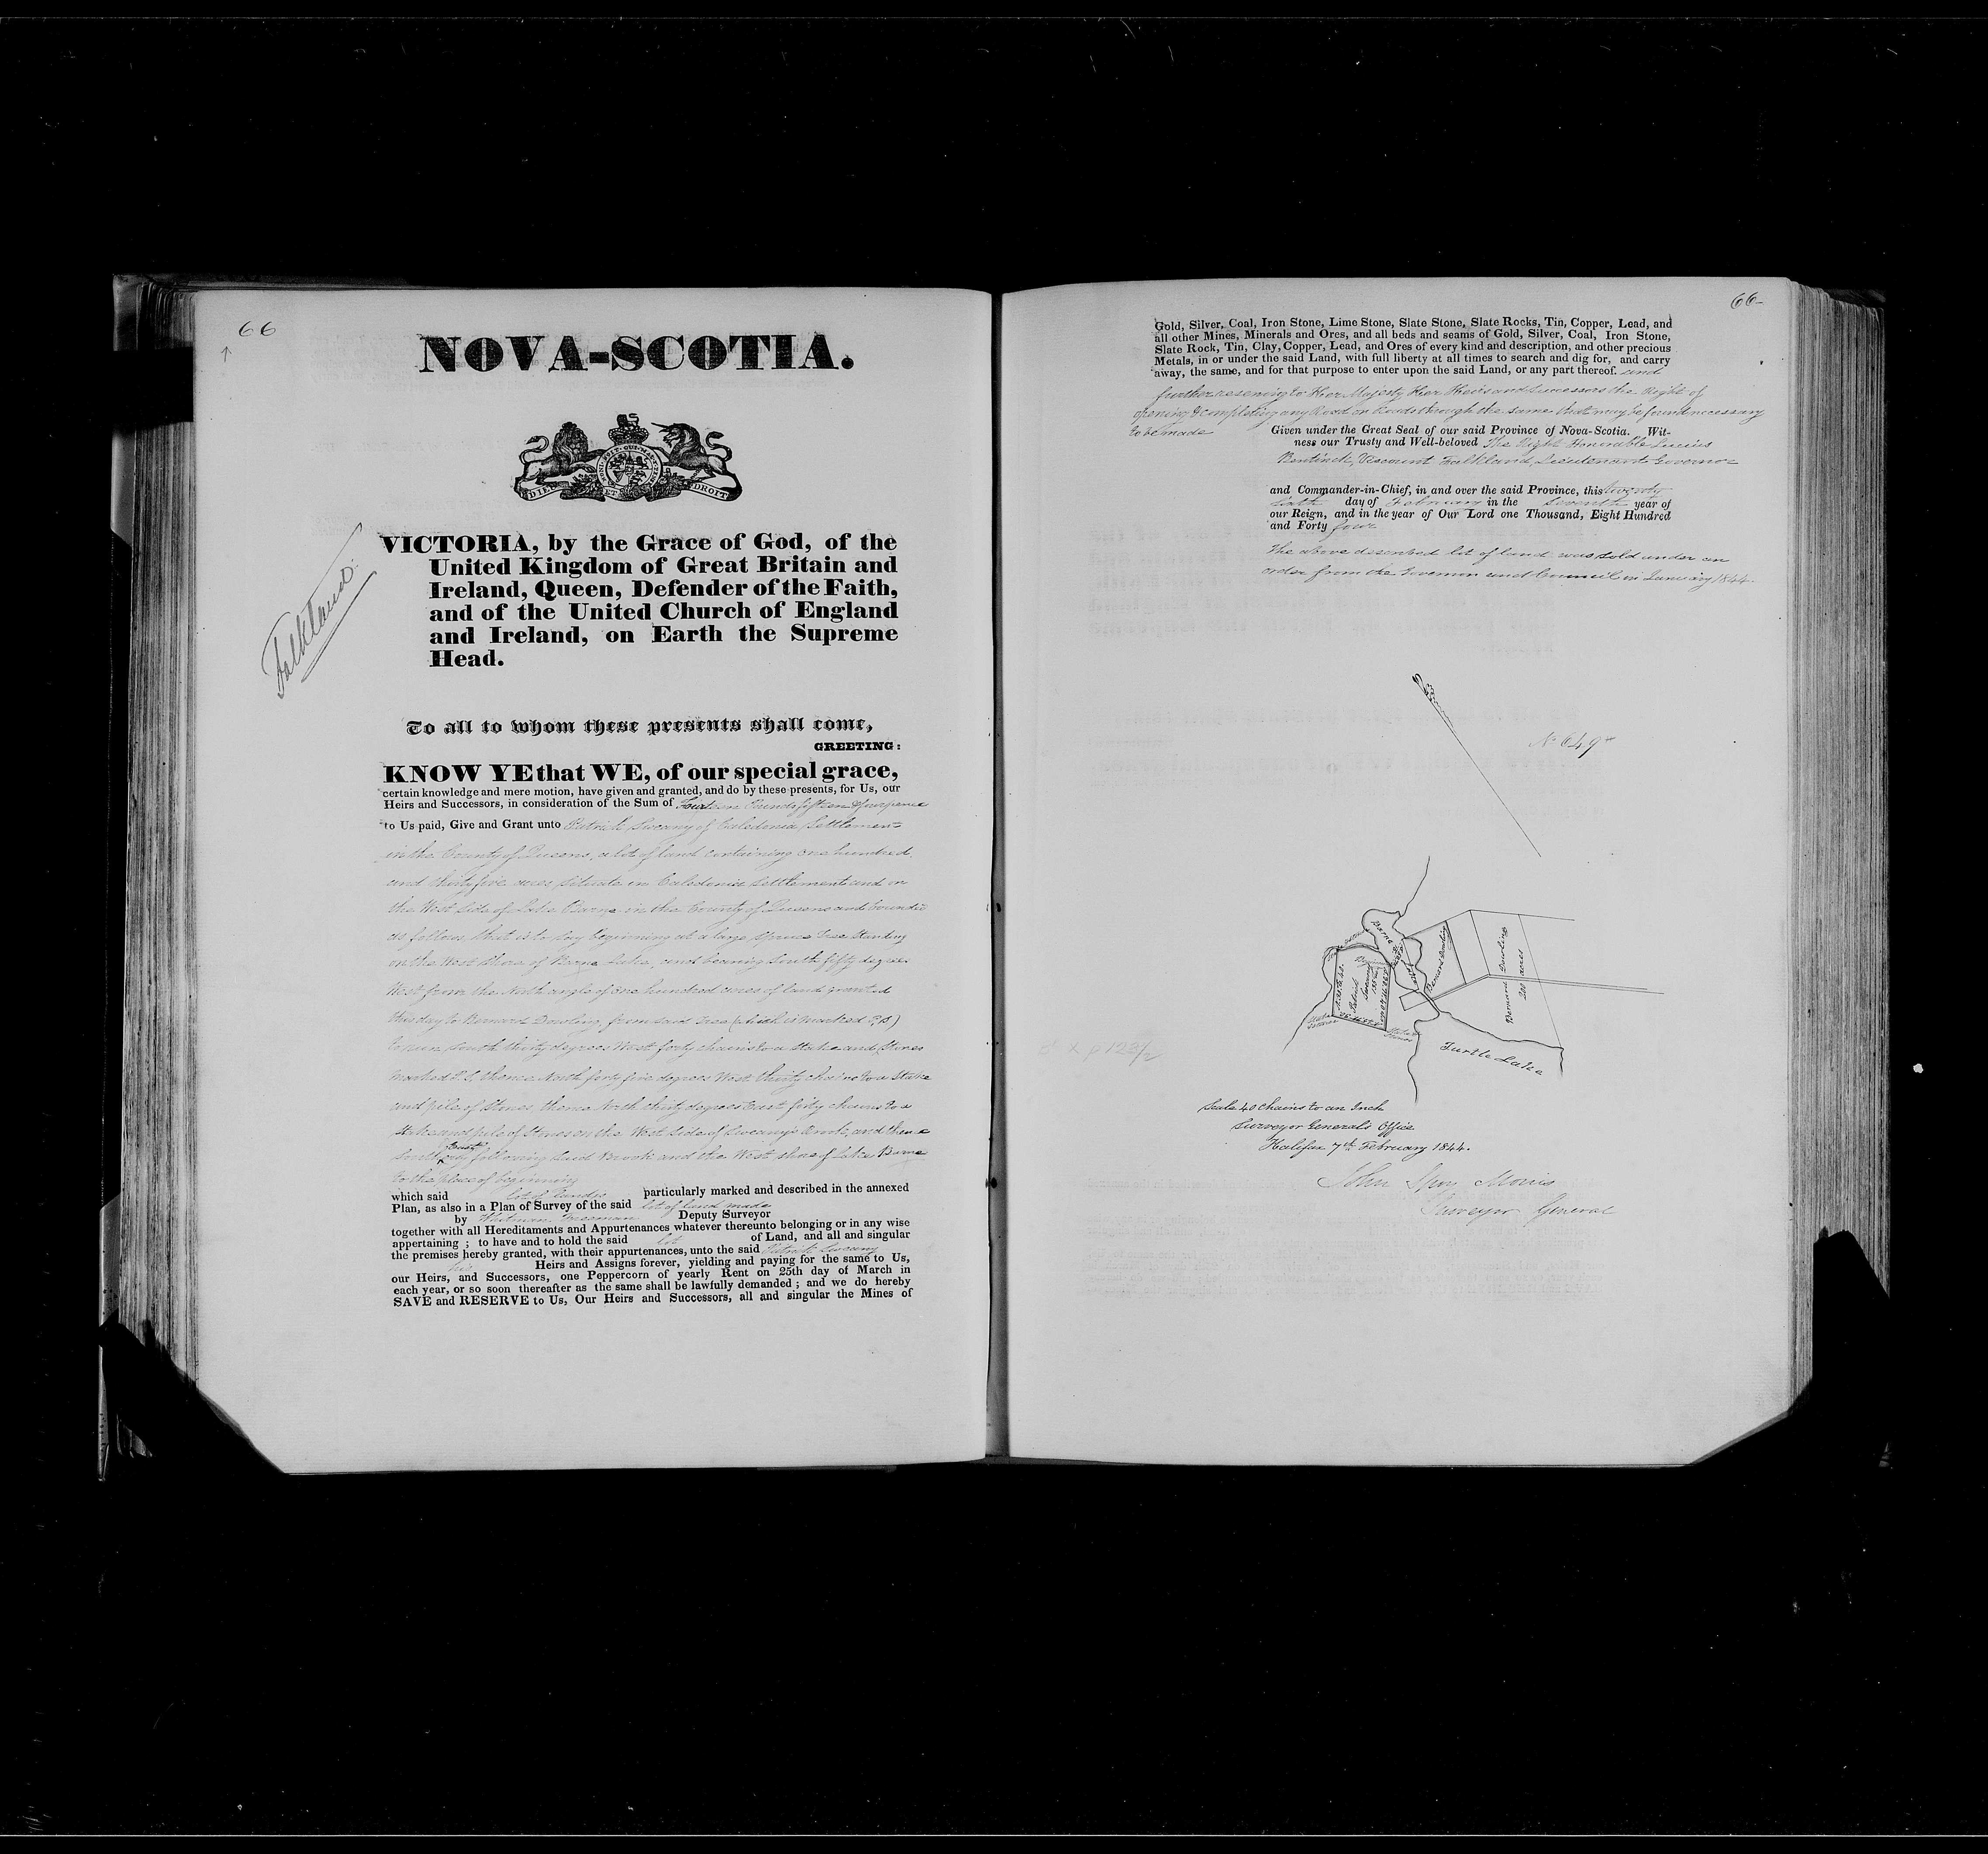 66
NOVA-SCOTIA.
DIEU ET MON DROIT
Falkland.
VICTORIA, by the Grace of God, of the
United Kingdom of Great Britain and
Ireland, Queen, Defender of the Faith,
and of the United Church of England
and Ireland, on Earth the Supreme
Head.
To all to whom these presents shall come,
GREETING:
KNOW YE that WE, of our special grace,
certain knowledge and mere motion, have given and granted, and do by these presents, for Us, our
Heirs and Successors, in consideration of the Sum of Pounds fifteen
to Us paid, Give and Grant unto Patrick Sweany of Caledonia Settlement
in the County of Queens, a lot of land containing one hundred
and thirty five acres situate in Caledonia Settlement and on
the West side of Lake Barna in the County of Queens and bounded
as follows, that is to say beginning at a large Spruce Tree Standing
on the West Shore of Barna Lake, and bearing South fifty degrees
West from the North angle of one hundred acres of land granted
this day to Bernard Dowling, from said Tree (which is marked P.S)
to run South thirty degrees West forty chains to a Stake and Stones
marked P.S, thence North forty five degrees West thirty chains to a Stake
and pile of Stones, thence North thirty degrees East fifty chains to a
Stake and pile of Stones on the West Side of Sweany's Brook, and thence
South East following said Brook and the West shore of Lake Barna
to the place of beginning
which said lot of land is particularly marked and described in the annexed
Plan, as also in a Plan of Survey of the said lot of land made
by Whitman Freeman Deputy Surveyor
together with all Hereditaments and Appurtenances whatever thereunto belonging or in any wise
appertaining ; to have and to hold the said lot of Land, and all and singular
the premises hereby granted, with their appurtenances, unto the said Patrick Sweany
his Heirs and Assigns forever, yielding and paying for the same to Us,
our Heirs, and Successors, one Peppercorn of yearly Rent on 25th day of March in
each year, or so soon thereafter as the same shall be lawfully demanded ; and we do hereby
SAVE and RESERVE to Us, Our Heirs and Successors, all and singular the Mines of
66
Gold, Silver, Coal, Iron Stone, Lime Stone, Slate Stone, Slate Rocks, Tin, Copper, Lead, and
all other Mines, Minerals and Ores, and all beds and seams of Gold, Silver, Coal, Iron Stone,
Slate Rock, Tin, Clay, Copper, Lead, and Ores of every kind and description, and other precious
Metals, in or under the said Land, with full liberty at all times to search and dig for, and carry
away, the same, and for that purpose to enter upon the said Land, or any part thereof. and
further reserving to Her Majesty Her Heirs and Successors the Right of
opening & completing any Road or Roads through the same that may be found necessary
to be made
Given under the Great Seal of our said Province of Nova-Scotia. Wit-
ness our Trusty and Well-beloved The Right Honorable Lucius
Bentinck, Viscount Falkland, Lieutenant Governor
and Commander-in-Chief, in and over the said Province, this twenty
sixth day of February in the Seventh year of
our Reign, and in the year of Our Lord one Thousand, Eight Hundred
and Forty four
The above described lot of land was sold under an
order from the Governor and Council in January 1844.
No 649
Barna Lake
Bernard Dowling
Bernard Dowling
200 acres
Patrick
Sweany
135 acres
Stake &
Stones
Turtle Lake
Scale 40 chains to an Inch
Surveyor General's Office
Halifax 7th February 1844.
John Spry Morris
Surveyor General